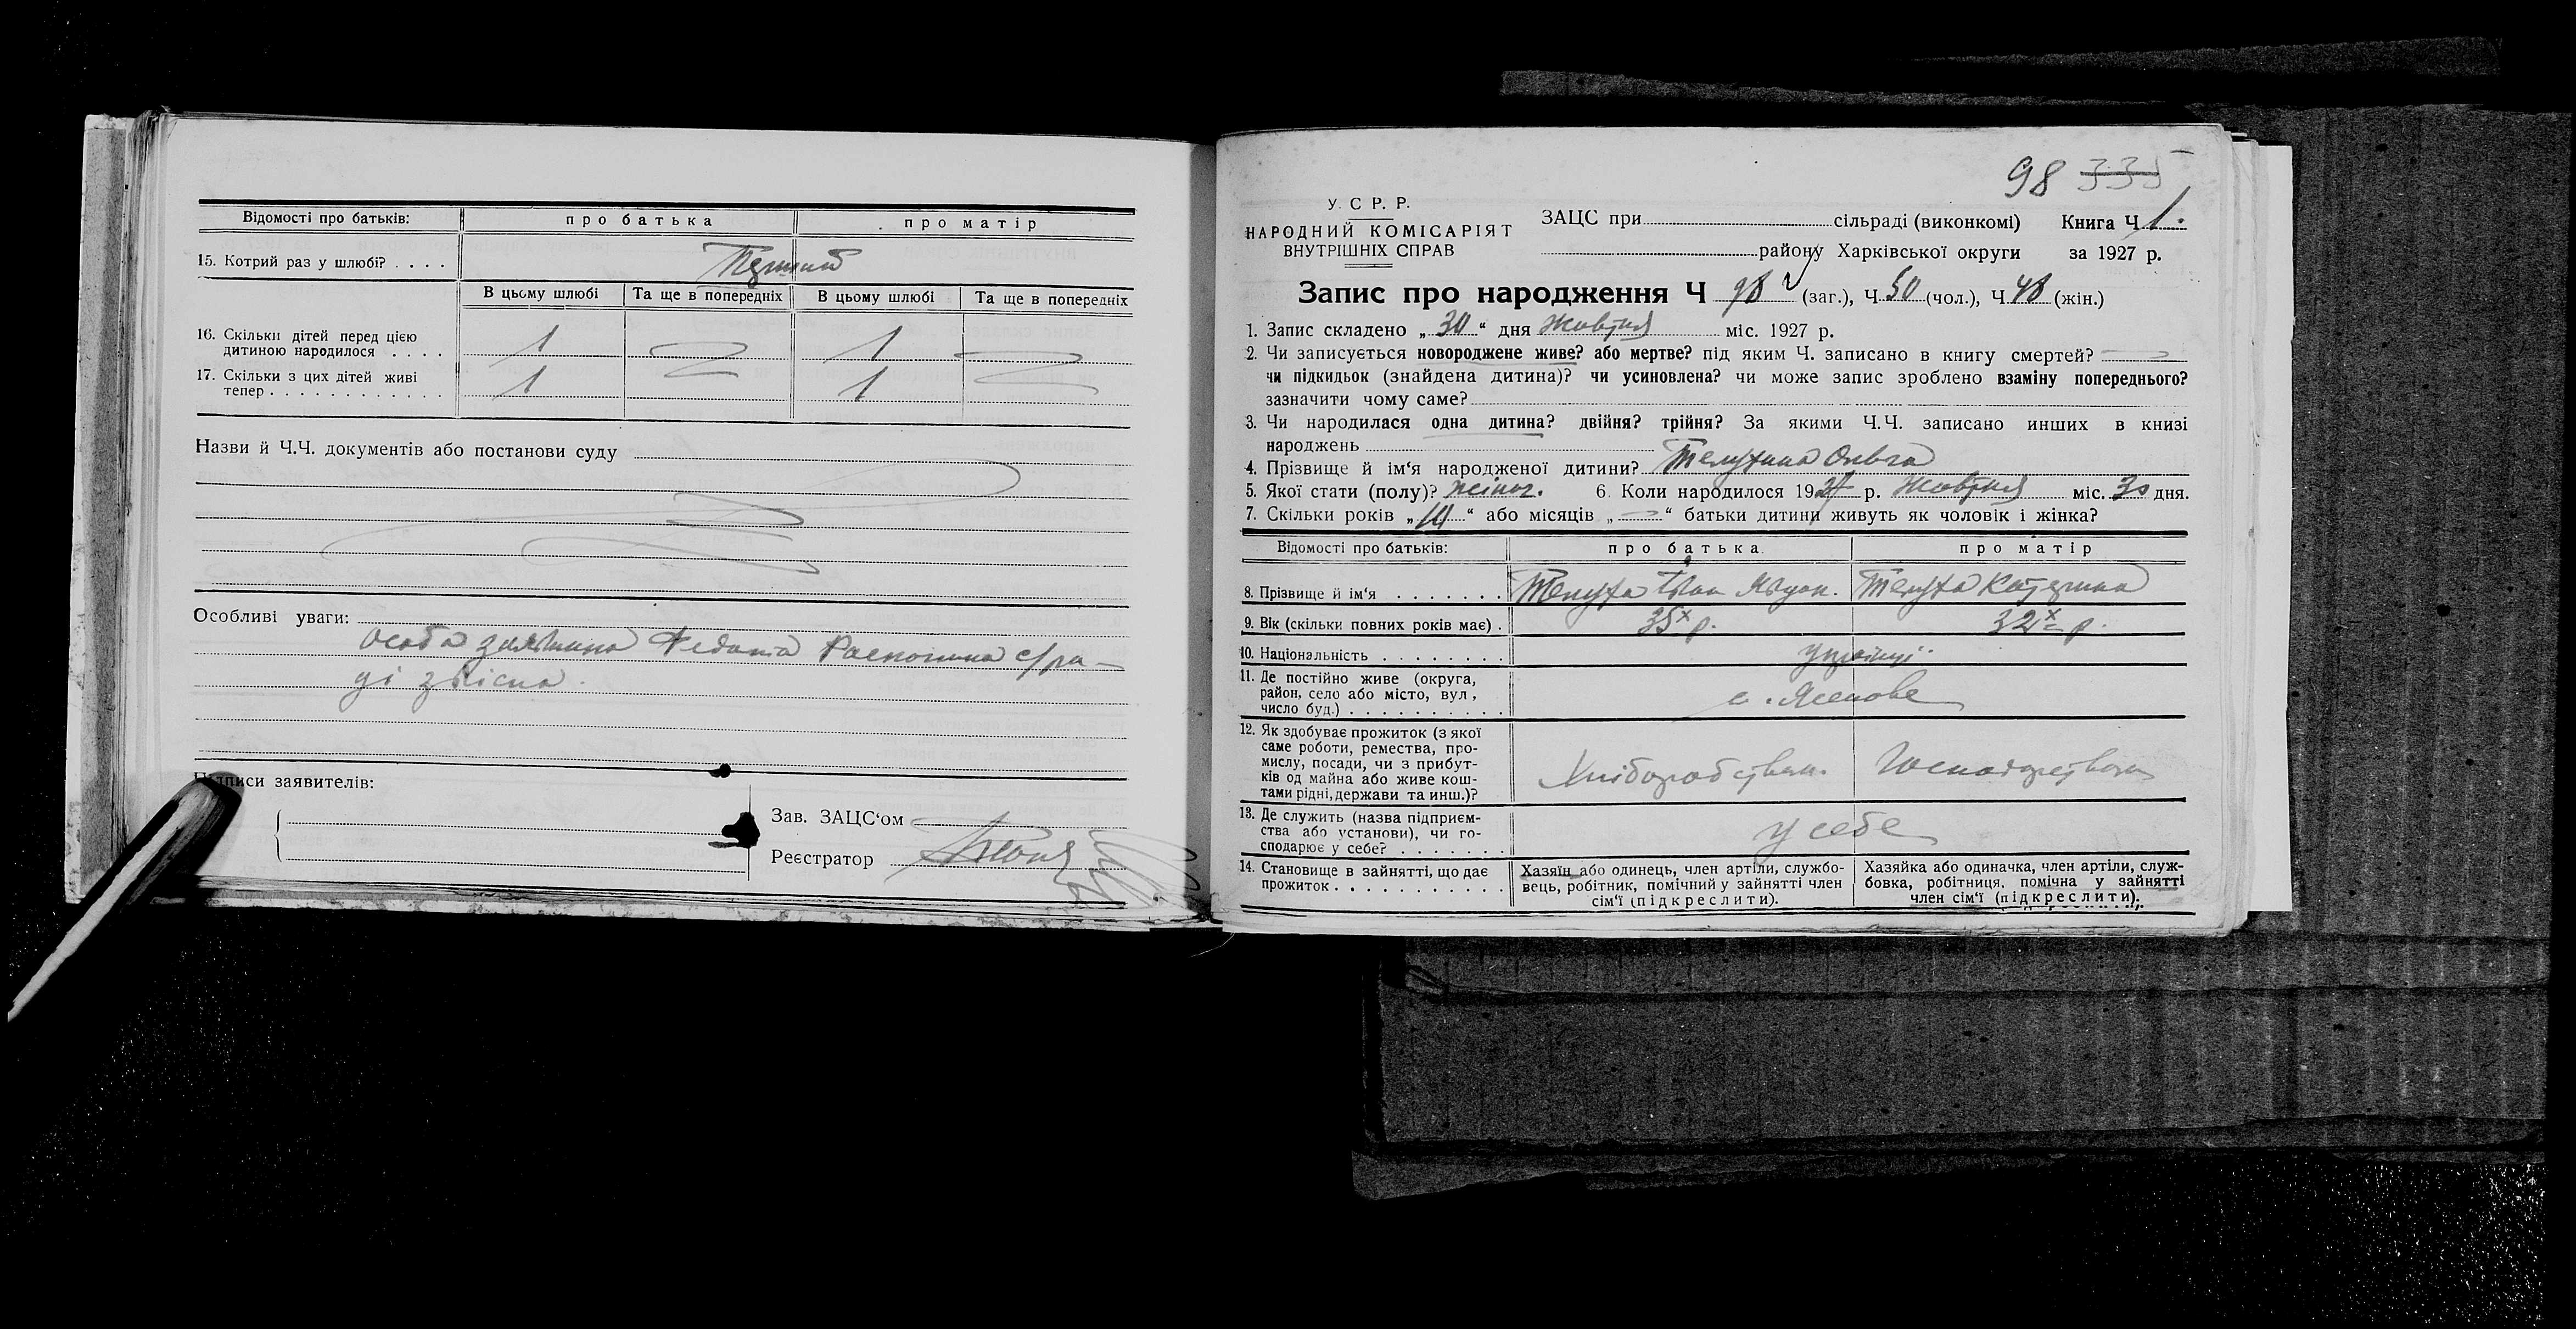 Відомості про батьків: про батька про матір
15. Котрий раз у шлюбі? . . . . Перший
В цьому шлюбі Та ще в попередніх В цьому шлюбі Та ще в попередніх
16. Скільки дітей перед цією
дитиною народилося . . . . 1 1
17. Скільки з цих дітей живі
тепер . . . . . . . . . . . . . 1 1
Назви й Ч.Ч. документів або постанови суду
Особливі уваги:
особа с/ра-
ді звісна.
Підписи заявителів:
Зав. ЗАЦС‘ом
Реєстратор
98 335
У. С Р. Р.
НАРОДНИЙ КОМІСАРІЯТ
ВНУТРІШНІХ СПРАВ
ЗАЦС при сільраді (виконкомі) Книга Ч 1.
району Харківської округи за 1927 р.
Запис про народження Ч 98 (заг.), Ч 50 (чол.), Ч 48 (жін.)
1. Запис складено „ 30 “ дня Жовтня міс. 1927 р.
2. Чи записується новороджене живе? або мертве? під яким Ч. записано в книгу смертей?
чи підкидьок (знайдена дитина)? чи усиновлена? чи може запис зроблено взаміну попереднього?
зазначити чому саме?
3. Чи народилася одна дитина? двійня? трійня? За якими Ч.Ч. записано инших в книзі
народжень
4. Прізвище й ім‘я народженої дитини? Ольга
5. Якої стати (полу)? жіноч. 6. Коли народилося 1927 р. Жовтня міс. 30 дня.
7. Скільки років „ “ або місяців „ “ батьки дитини живуть як чоловік і жінка?
Відомості про батьків: про батька. про матір
8. Прізвище й ім‘я . . . . . . . Телуха Іван Телуха Катерина
9. Вік (скільки повних років має) . 35х р. 32х р.
10. Національність . . . . . . . українці
11. Де постійно живе (округа,
район, село або місто, вул,
число буд.) . . . . . . . . . . с. Ясенове
12. Як здобуває прожиток (з якої
саме роботи, ремества, про-
мислу, посади, чи з прибут-
ків од майна або живе кош-
тами рідні, держави та инш.)? Хліборобством. Господарством
13. Де служить (назва підприєм-
ства або установи), чи го-
сподарює у себе? . . . . . . . у себе
14. Становище в зайнятті, що дає
прожиток . . . . . . . . . . .
Хазяїн або одинець, член артіли, службо-
вець, робітник, помічний у зайнятті член
сім‘ї (підкреслити).
Хазяйка або одиначка, член артіли, служ-
бовка, робітниця, помічна у зайнятті
член сім‘ї (підкреслити).